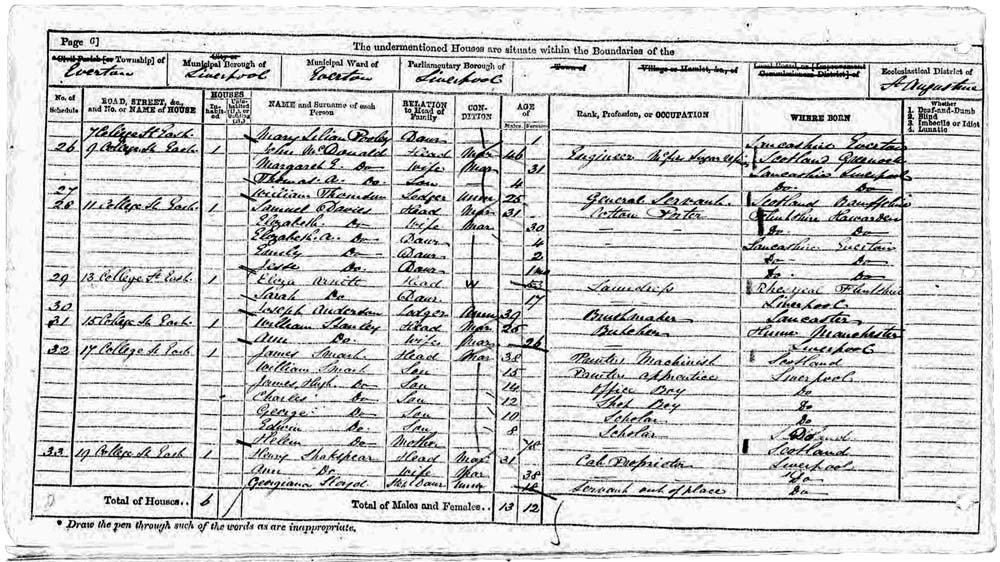 Page 6]
The undermentioned Houses are situate within the Boundaries of the
* Civil Parish [or Township] of
Everton
City or Municipal Borough of
Liverpool
Municipal Ward of
Everton
Parliamentary Borough of
Liverpool
Town of
Village or Hamlet, &c., of
Local Board, or [Improvement Commissioners District] of
Ecclesiastical District of
St Augustine
No. of Schedule
ROAD, STREET, &c., and No. or NAME of HOUSE
HOUSES
Inhabited
Uninhabited (U.), or Building (B.)
NAME and Surname of each Person
RELATION to Head of Family
CONDITION
AGE of
Males
Females
Rank, Profession, or OCCUPATION
WHERE BORN
Whether
1. Deaf-and-Dumb
2. Blind
3. Imbecile or Idiot
4. Lunatic
7 College St. East Mary Lilian Daur 1 Lancashire Everton
26 9 College St. East 1 John McDonald Head Mar 46 Engineer Scotland Greenock
Margaret E. Do Wife Mar 31 Lancashire Liverpool
Thomas A. Do Son 4 Do Do
27 William Thomson Lodger Unm 25 General Servant Scotland Banffshire
28 11 College St. East 1 Samuel Davies Head Mar 31 Cotton Porter Flintshire Hawarden
Elizabeth Do Wife Mar 30 Do Do
Elizabeth A. Do Daur 4 Lancashire Everton
Emily Do Daur 2 Do Do
Do Daur Do Do
29 13 College St. East 1 Eliza Head W 53 Laundress Flintshire
Sarah Do Daur 17 Liverpool
30 Joseph Anderson Lodger Unm 39 Brushmaker Lancaster
31 15 College St. East 1 William Stanley Head Mar 25 Butcher Hulme Manchester
Ann Do Wife Mar 26 Liverpool
32 17 College St. East 1 James Smart Head Mar 38 Machinist Scotland
William Smart Son 15 apprentice Liverpool
James Hugh Do Son 14 Office Boy Do
Charles Do Son 12 Shop Boy Do
George Do Son 10 Scholar Do
Edwin Do Son 8 Scholar Do
Helen Do Mother 78 Scotland
33 19 College St. East 1 Henry Shakspear Head Mar 31 Cab Proprietor Liverpool
Ann Do Wife Mar 38 Do
Georgiana Lloyd Daur Unm 18 Servant out of place Do
Total of Houses.. 6
Total of Males and Females.. 13 12
* Draw the pen through such of the words as are inappropriate.